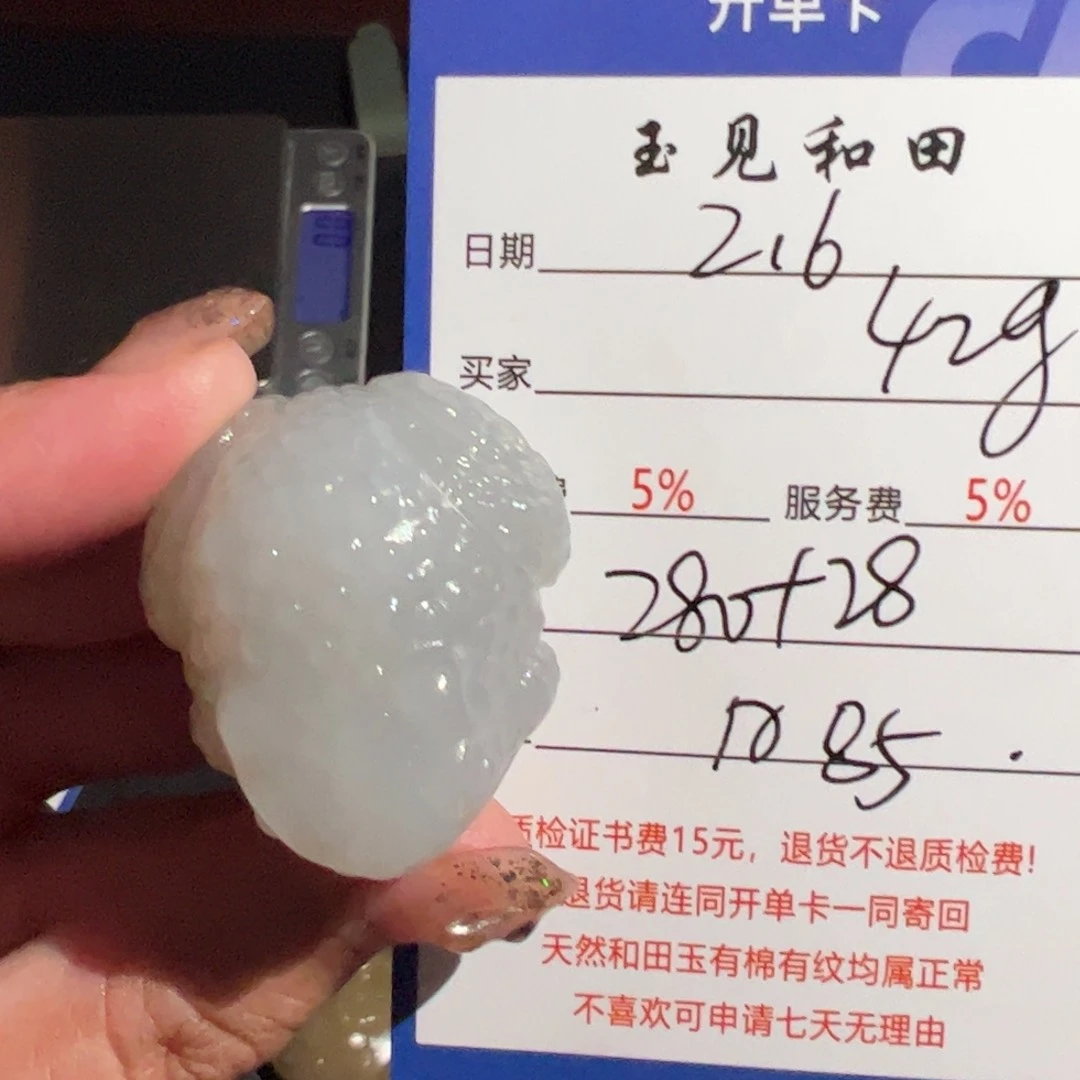 开单卡
玉见和田
日期 2.6
42g
买家
5% 服务费 5%
280+28
85.
质检证书费15元，退货不退质检费！
退货请连同开单卡一同寄回
天然和田玉有棉有纹均属正常
不喜欢可申请七天无理由